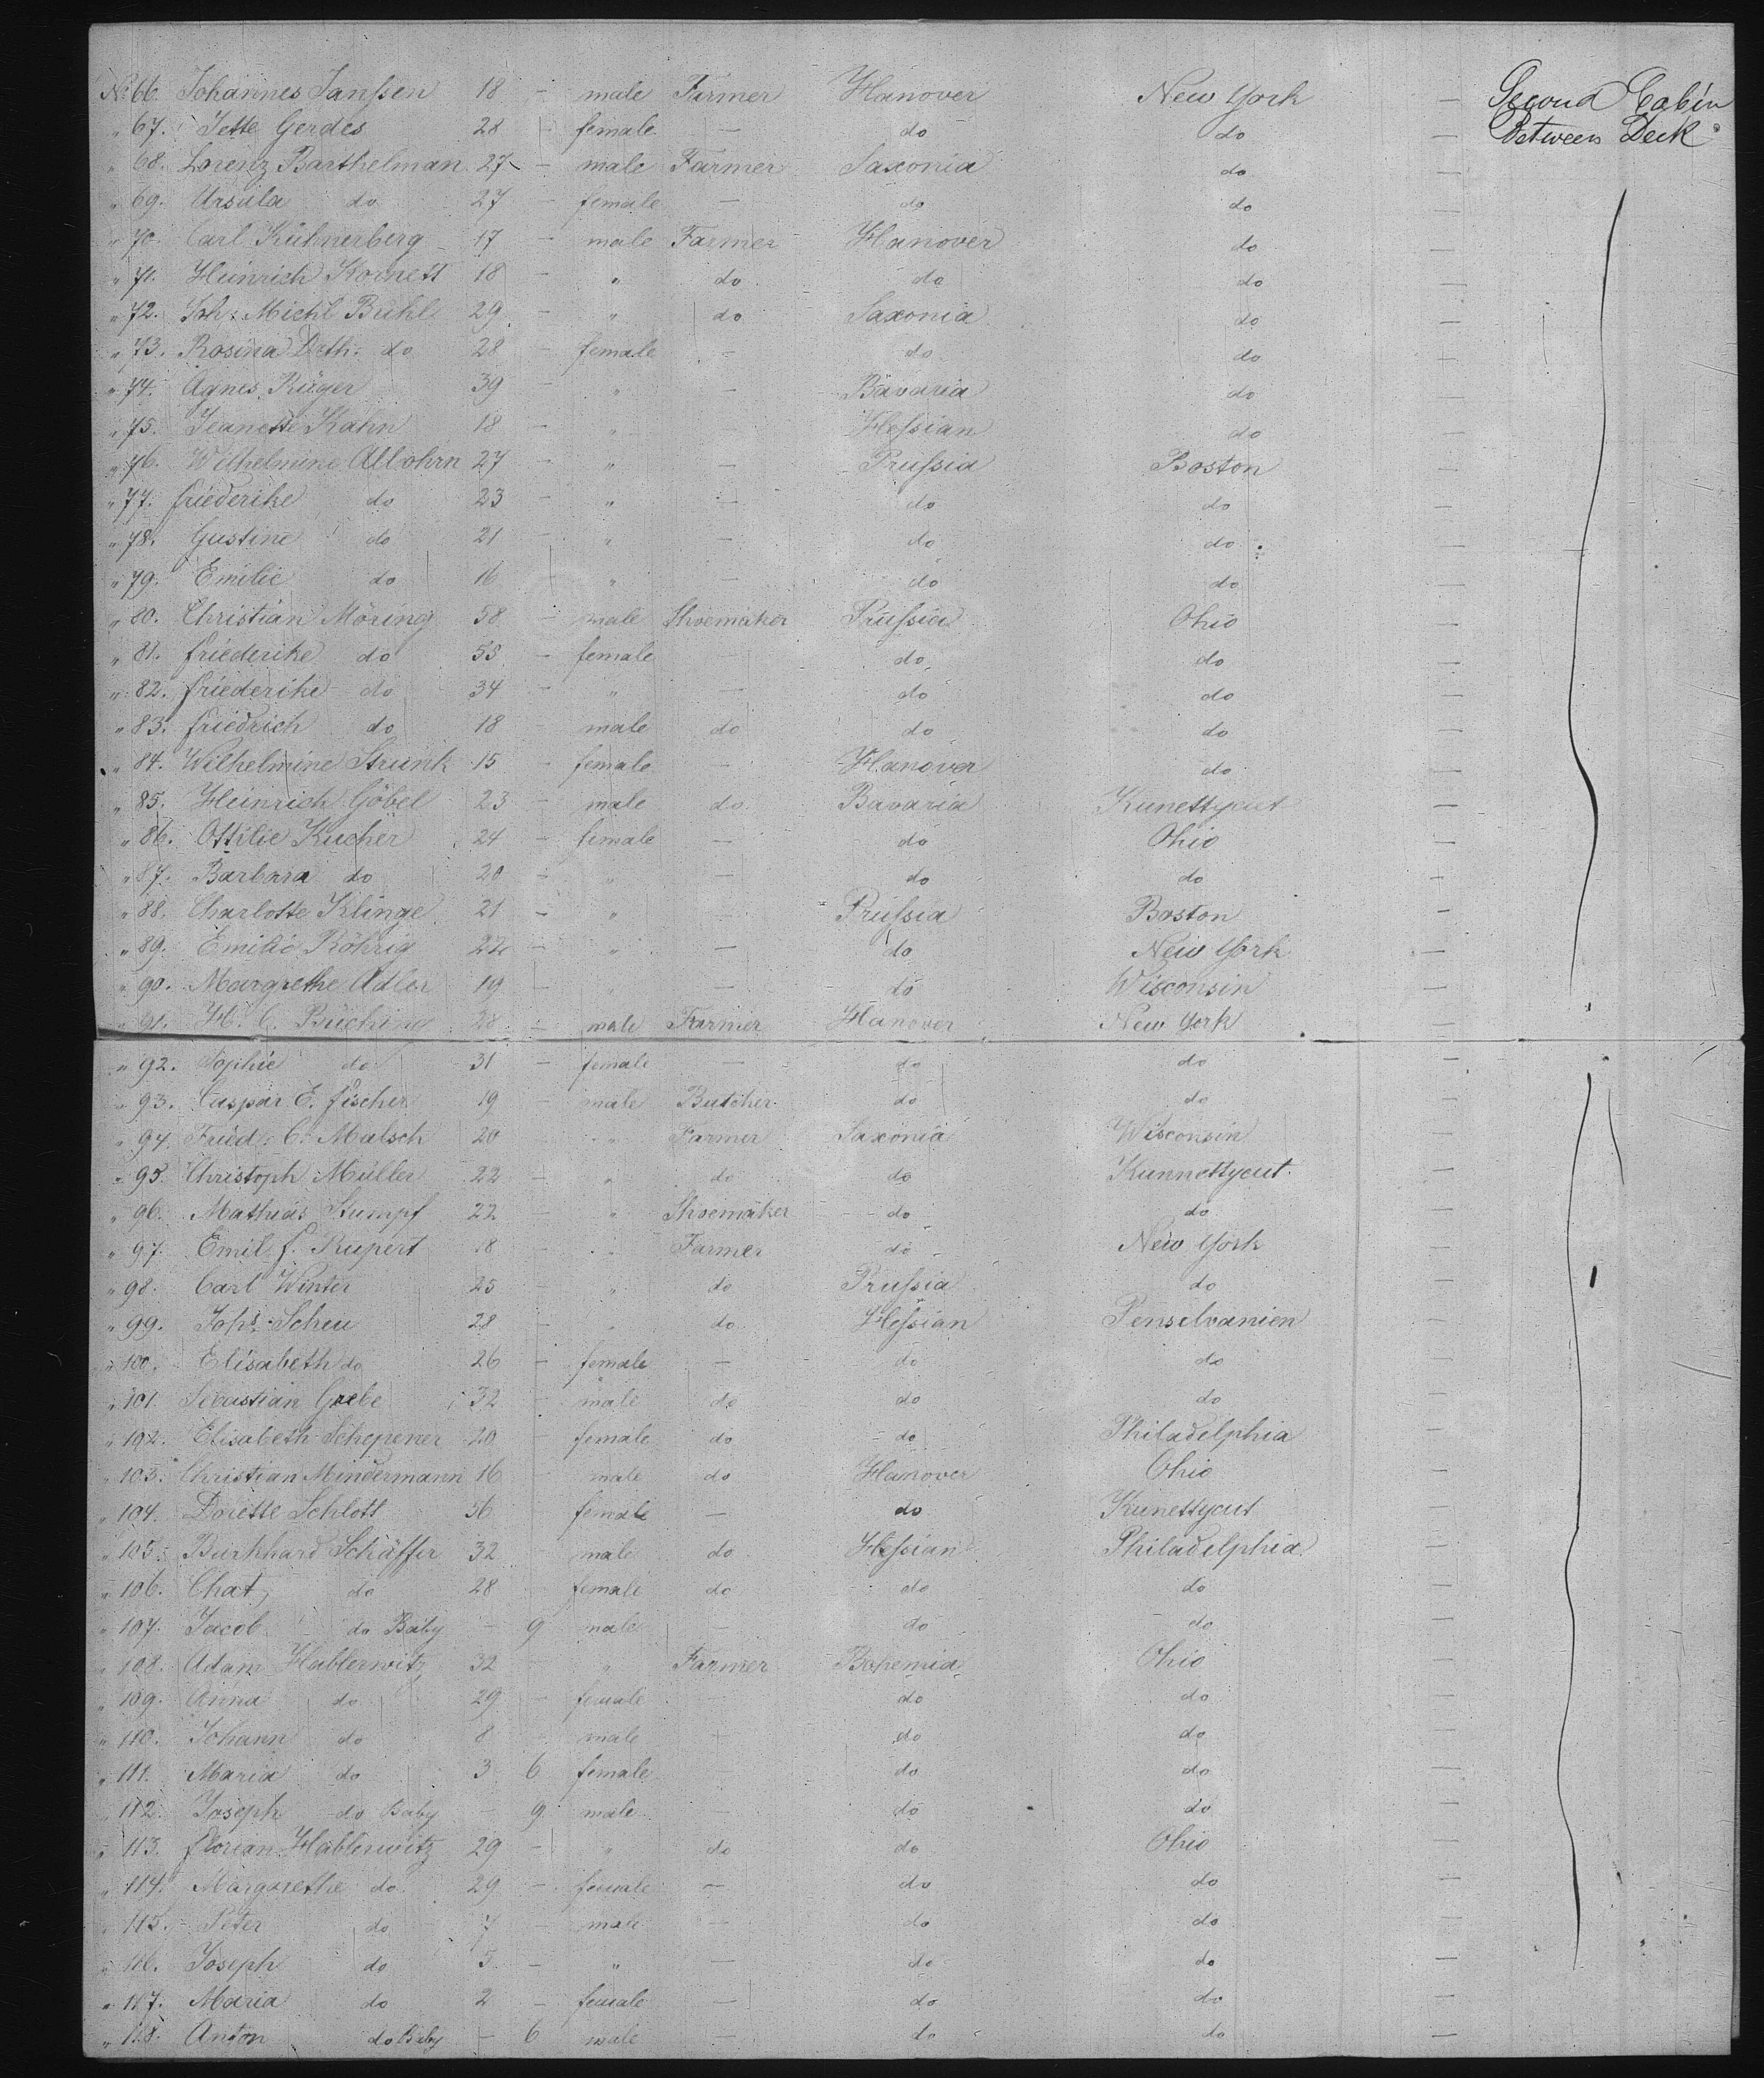 No 66. Johannes Janssen 18 - male Farmer Hanover New York — Second Cabin
" 67. Jette Gerdes 28 - female — do do — Between Deck
" 68. Lorenz Barthelman 27 - male Farmer Saxonia do —
" 69. Ursula do 27 - female — do do —
" 70. Carl Kühnerberg 17 - male Farmer Hanover do —
" 71. Heinrich Kornett 18 - " do do do —
" 72. Joh: Michl Bühl 29 - " do Saxonia do —
" 73. Rosina Dth: do 28 - female — do do —
" 74. Agnes Rüger 39 - " — Bavaria do —
" 75. Jeanette Kahn 18 - " Hessian do —
" 76. Wilhelmine Allohrn 27 - " — Prussia Boston —
" 77. friederike do 23 - " — do do —
" 78. Gustine do 21 - " — do do —
" 79. Emilie do 16 - " — do do —
" 80. Christian Möring 58 - male Shoemaker Prussia Ohio —
" 81. friederike do 55 - female — do do —
" 82. friederike do 34 - " — do do —
" 83. friedrich do 18 - male do do do —
" 84. Wilhelmine Strunk 15 - female — Hanover do —
" 85. Heinrich Göbel 23 - male do Bavaria Kunettycut —
" 86. Ottilie Kucher 24 - female — do Ohio —
" 87. Barbara do 20 - " — do do —
" 88. Charlotte Klinge 21 - " — Prussia Boston —
" 89. Emilie Röhrig 22 - " — do New York —
" 90. Margrethe Adler 19 - " — do Wisconsin —
" 91. H. C. Büching 28 - male Farmer Hanover New York —
" 92. Sophie do 31 - female — do do —
" 93. Caspar E. fischer 19 - male Butcher do do —
" 94. Fried: C. Malsch 20 " Farmer Saxonia Wisconsin —
" 95. Christoph Müller 22 - " do do Kunnettycut —
" 96. Mathias Stumpf 22 - " Shoemaker do do —
" 97. Emil f. Rupert 18 - " Farmer do New York —
" 98. Carl Winter 25 - " do Prussia do —
" 99. Johs. Scheu 28 - " do Hessian Penselvanien —
" 100. Elisabeth do 26 - female — do do —
" 101. Sebastian Grebe 32 - male do do do —
" 102. Elisabeth Schepener 20 - female do do Philadelphia —
" 103. Christian Mindermann 16 - male do Hanover Ohio —
" 104. Dorette Schlott 56 - female — do Kunettycut —
" 105. Burkhard Schäffer 32 male do Hessian Philadelphia —
" 106. Chat, do 28 - female do do do —
" 107. Jacob do Baby - 9 male — do do —
" 108. Adam Hablerwitz 32 - " Farmer Bohemia Ohio —
" 109. Anna do 29 - female — do do —
" 110. Johann do 8 - male — do do —
" 111. Maria do 3 6 female — do do —
" 112. Joseph do Baby - 9 male — do do —
" 113. florian Hablerwitz 29 - " do do Ohio —
" 114. Margarethe do 29 - female — do do —
" 115. Peter do 7 - male — do do —
" 116. Joseph do 5 - " — do do —
" 117. Maria do 2 - female — do do —
" 118. Anton do Baby - 6 male — do do —